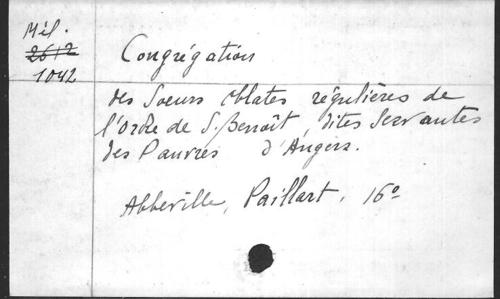 Mél.
2612
1042
Congrégation
des Soeurs oblates régulières de
l'Ordre de S. Benoît, dites Servantes
des Pauvres d'Angers.
Abbeville, Paillart, 16°